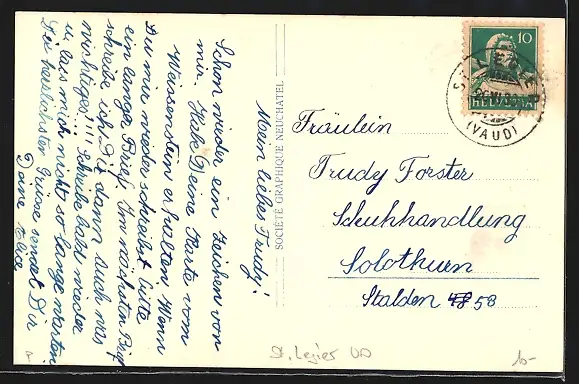 Mein liebes Trudy!
Schon wieder ein Zeichen von
mir. Habe Deine Karte vom
Weissenstein erhalten. Wenn
Du mir wieder schreibst bitte
ein lange Brief. Im nächsten Brief
schreibe ich Dir dann auch was
wichtiges!!! Schreibe bald wieder
u. lass mich nicht so lange warten
Die herzlichsten Grüsse sendet Dir
Deine
SOCIÉTÉ GRAPHIQUE NEUCHATEL
10
HELVETIA
(VAUD)
Fräulein
Trudy Forster
Schuhhandlung
Solothurn
Stalden 48 58
St. Legier VD
10-